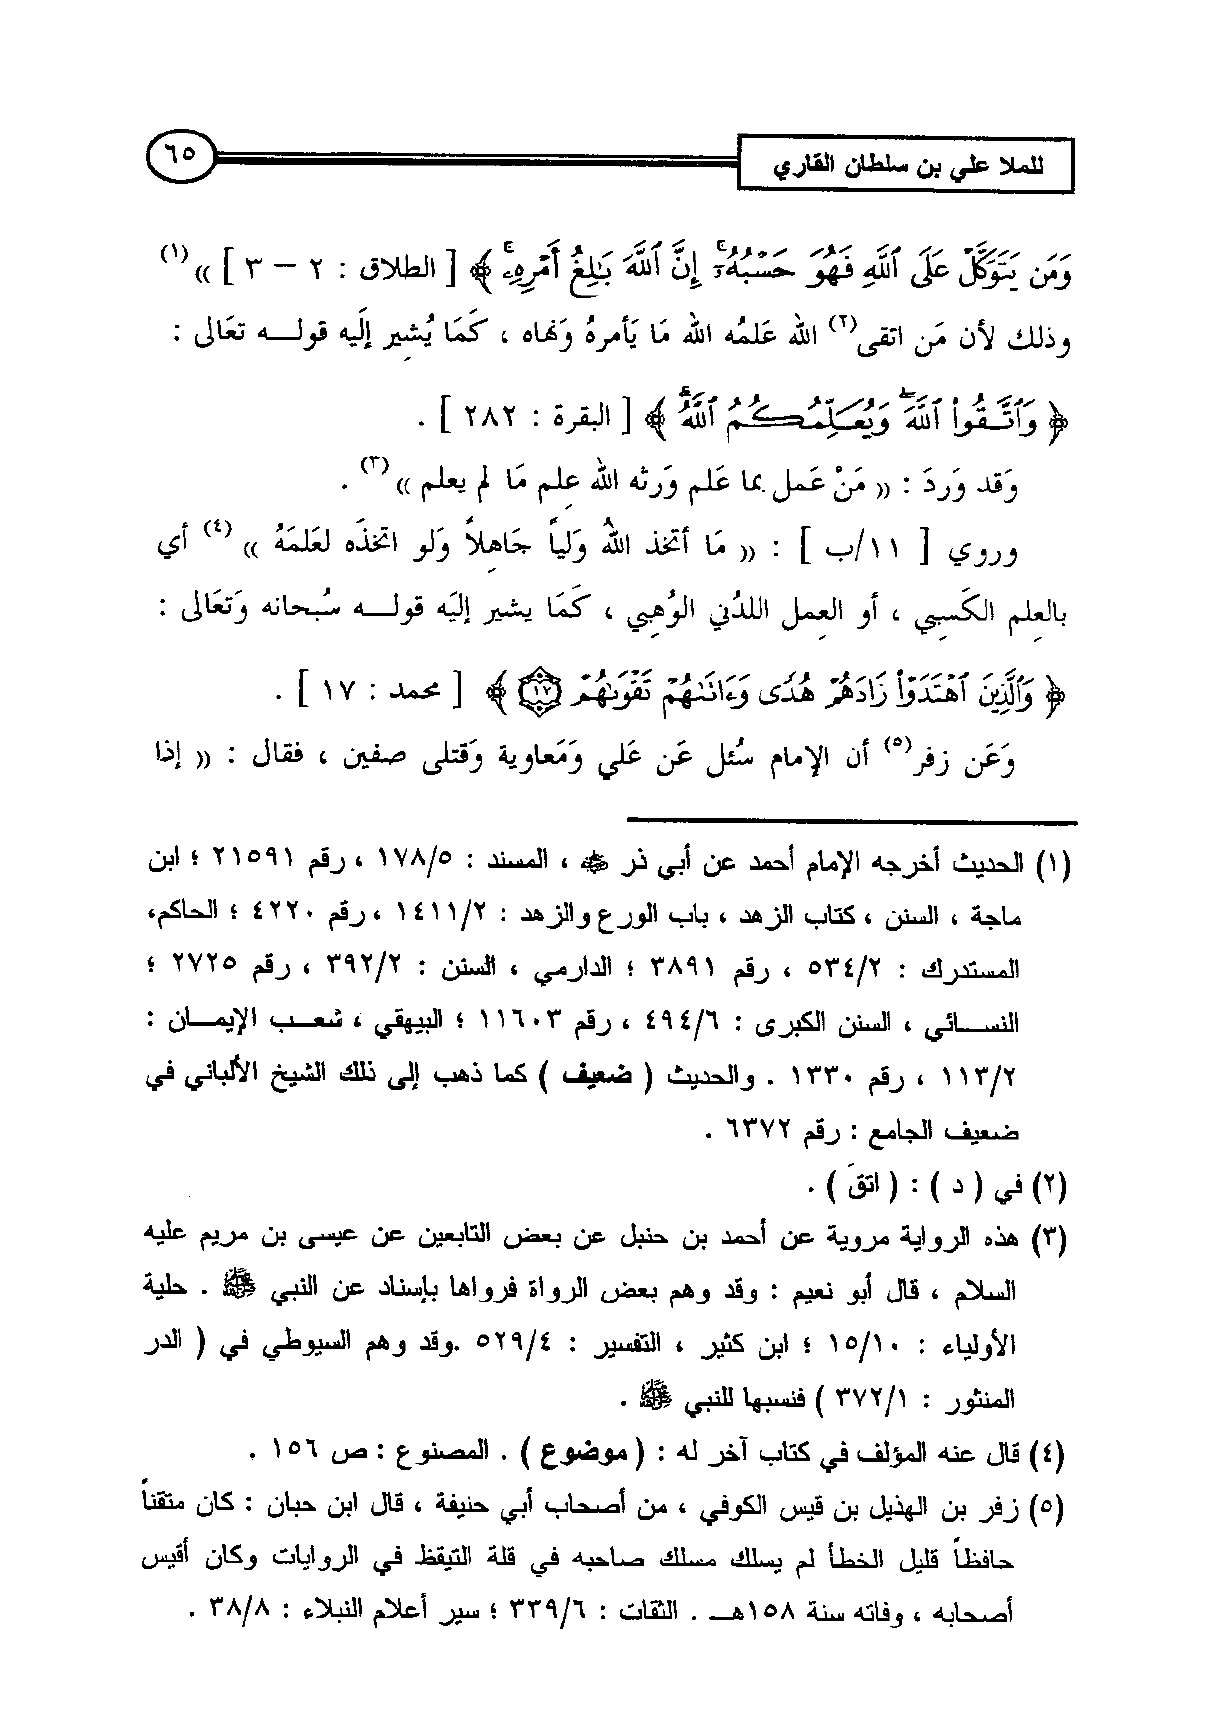 للملا علي بن سلطان القاري
٦٥
وَمَن يَتَوَكَّلْ عَلَى ٱللَّهِ فَهُوَ حَسْبُهُۥٓ ۚ إِنَّ ٱللَّهَ بَٰلِغُ أَمْرِهِۦ ۚ ﴾ [ الطلاق : ٢ – ٣ ] »(١)
وذلك لأن مَن اتقى(٢) الله عَلمُه الله مَا يَأمرهُ وَنهاه ، كَمَا يُشِير إلَيه قولــه تعَالى :
﴿ وَٱتَّقُوا۟ ٱللَّهَ ۖ وَيُعَلِّمُكُمُ ٱللَّهُ ۗ ﴾ [ البقرة : ٢٨٢ ] .
وَقد وَردَ : « مَنْ عَمل بما عَلم وَرثه الله عِلم مَا لم يعلم »(٣) .
وروي [ ١١/ب ] : « مَا أتخذ اللهُ وَلياً جَاهِلاً وَلو اتخذَه لعَلمَهُ »(٤) أي
بالعِلم الكَسبِي ، أو العِمل اللدُني الوُهبِي ، كَمَا يشير إليَه قولــه سُبحانه وَتعَالى :
﴿ وَٱلَّذِينَ ٱهْتَدَوْا۟ زَادَهُمْ هُدًى وَءَاتَىٰهُمْ تَقْوَىٰهُمْ ١٧ ﴾ [ محمد : ١٧ ] .
وَعَن زفر(٥) أن الإمام سُئل عَن عَلي وَمَعاوية وَقتلى صفين ، فقال : « إذا
(١) الحديث أخرجه الإمام أحمد عن أبي ذر ﷺ ، المسند : ١٧٨/٥ ، رقم ٢١٥٩١ ؛ ابن
ماجة ، السنن ، كتاب الزهد ، باب الورع والزهد : ١٤١١/٢ ، رقم ٤٢٢٠ ؛ الحاكم،
المستدرك : ٥٣٤/٢ ، رقم ٣٨٩١ ؛ الدارمي ، السنن : ٣٩٢/٢ ، رقم ٢٧٢٥ ؛
النســائي ، السنن الكبرى : ٤٩٤/٦ ، رقم ١١٦٠٣ ؛ البيهقي ، شعــب الإيمــان :
١١٣/٢ ، رقم ١٣٣٠ . والحديث ( ضعيف ) كما ذهب إلى ذلك الشيخ الألباني في
ضعيف الجامع : رقم ٦٣٧٢ .
(٢) في ( د ) : ( اتقَ ) .
(٣) هذه الرواية مروية عن أحمد بن حنبل عن بعض التابعين عن عيسى بن مريم عليه
السلام ، قال أبو نعيم : وقد وهم بعض الرواة فرواها بإسناد عن النبي ﷺ . حلية
الأولياء : ١٥/١٠ ؛ ابن كثير ، التفسير : ٥٢٩/٤ .وقد وهم السيوطي في ( الدر
المنثور : ٣٧٢/١ ) فنسبها للنبي ﷺ .
(٤) قال عنه المؤلف في كتاب آخر له : ( موضوع ) . المصنوع : ص ١٥٦ .
(٥) زفر بن الهذيل بن قيس الكوفي ، من أصحاب أبي حنيفة ، قال ابن حبان : كان متقناً
حافظاً قليل الخطأ لم يسلك مسلك صاحبه في قلة التيقظ في الروايات وكان أقيس
أصحابه ، وفاته سنة ١٥٨هــ . الثقات : ٣٣٩/٦ ؛ سير أعلام النبلاء : ٣٨/٨ .